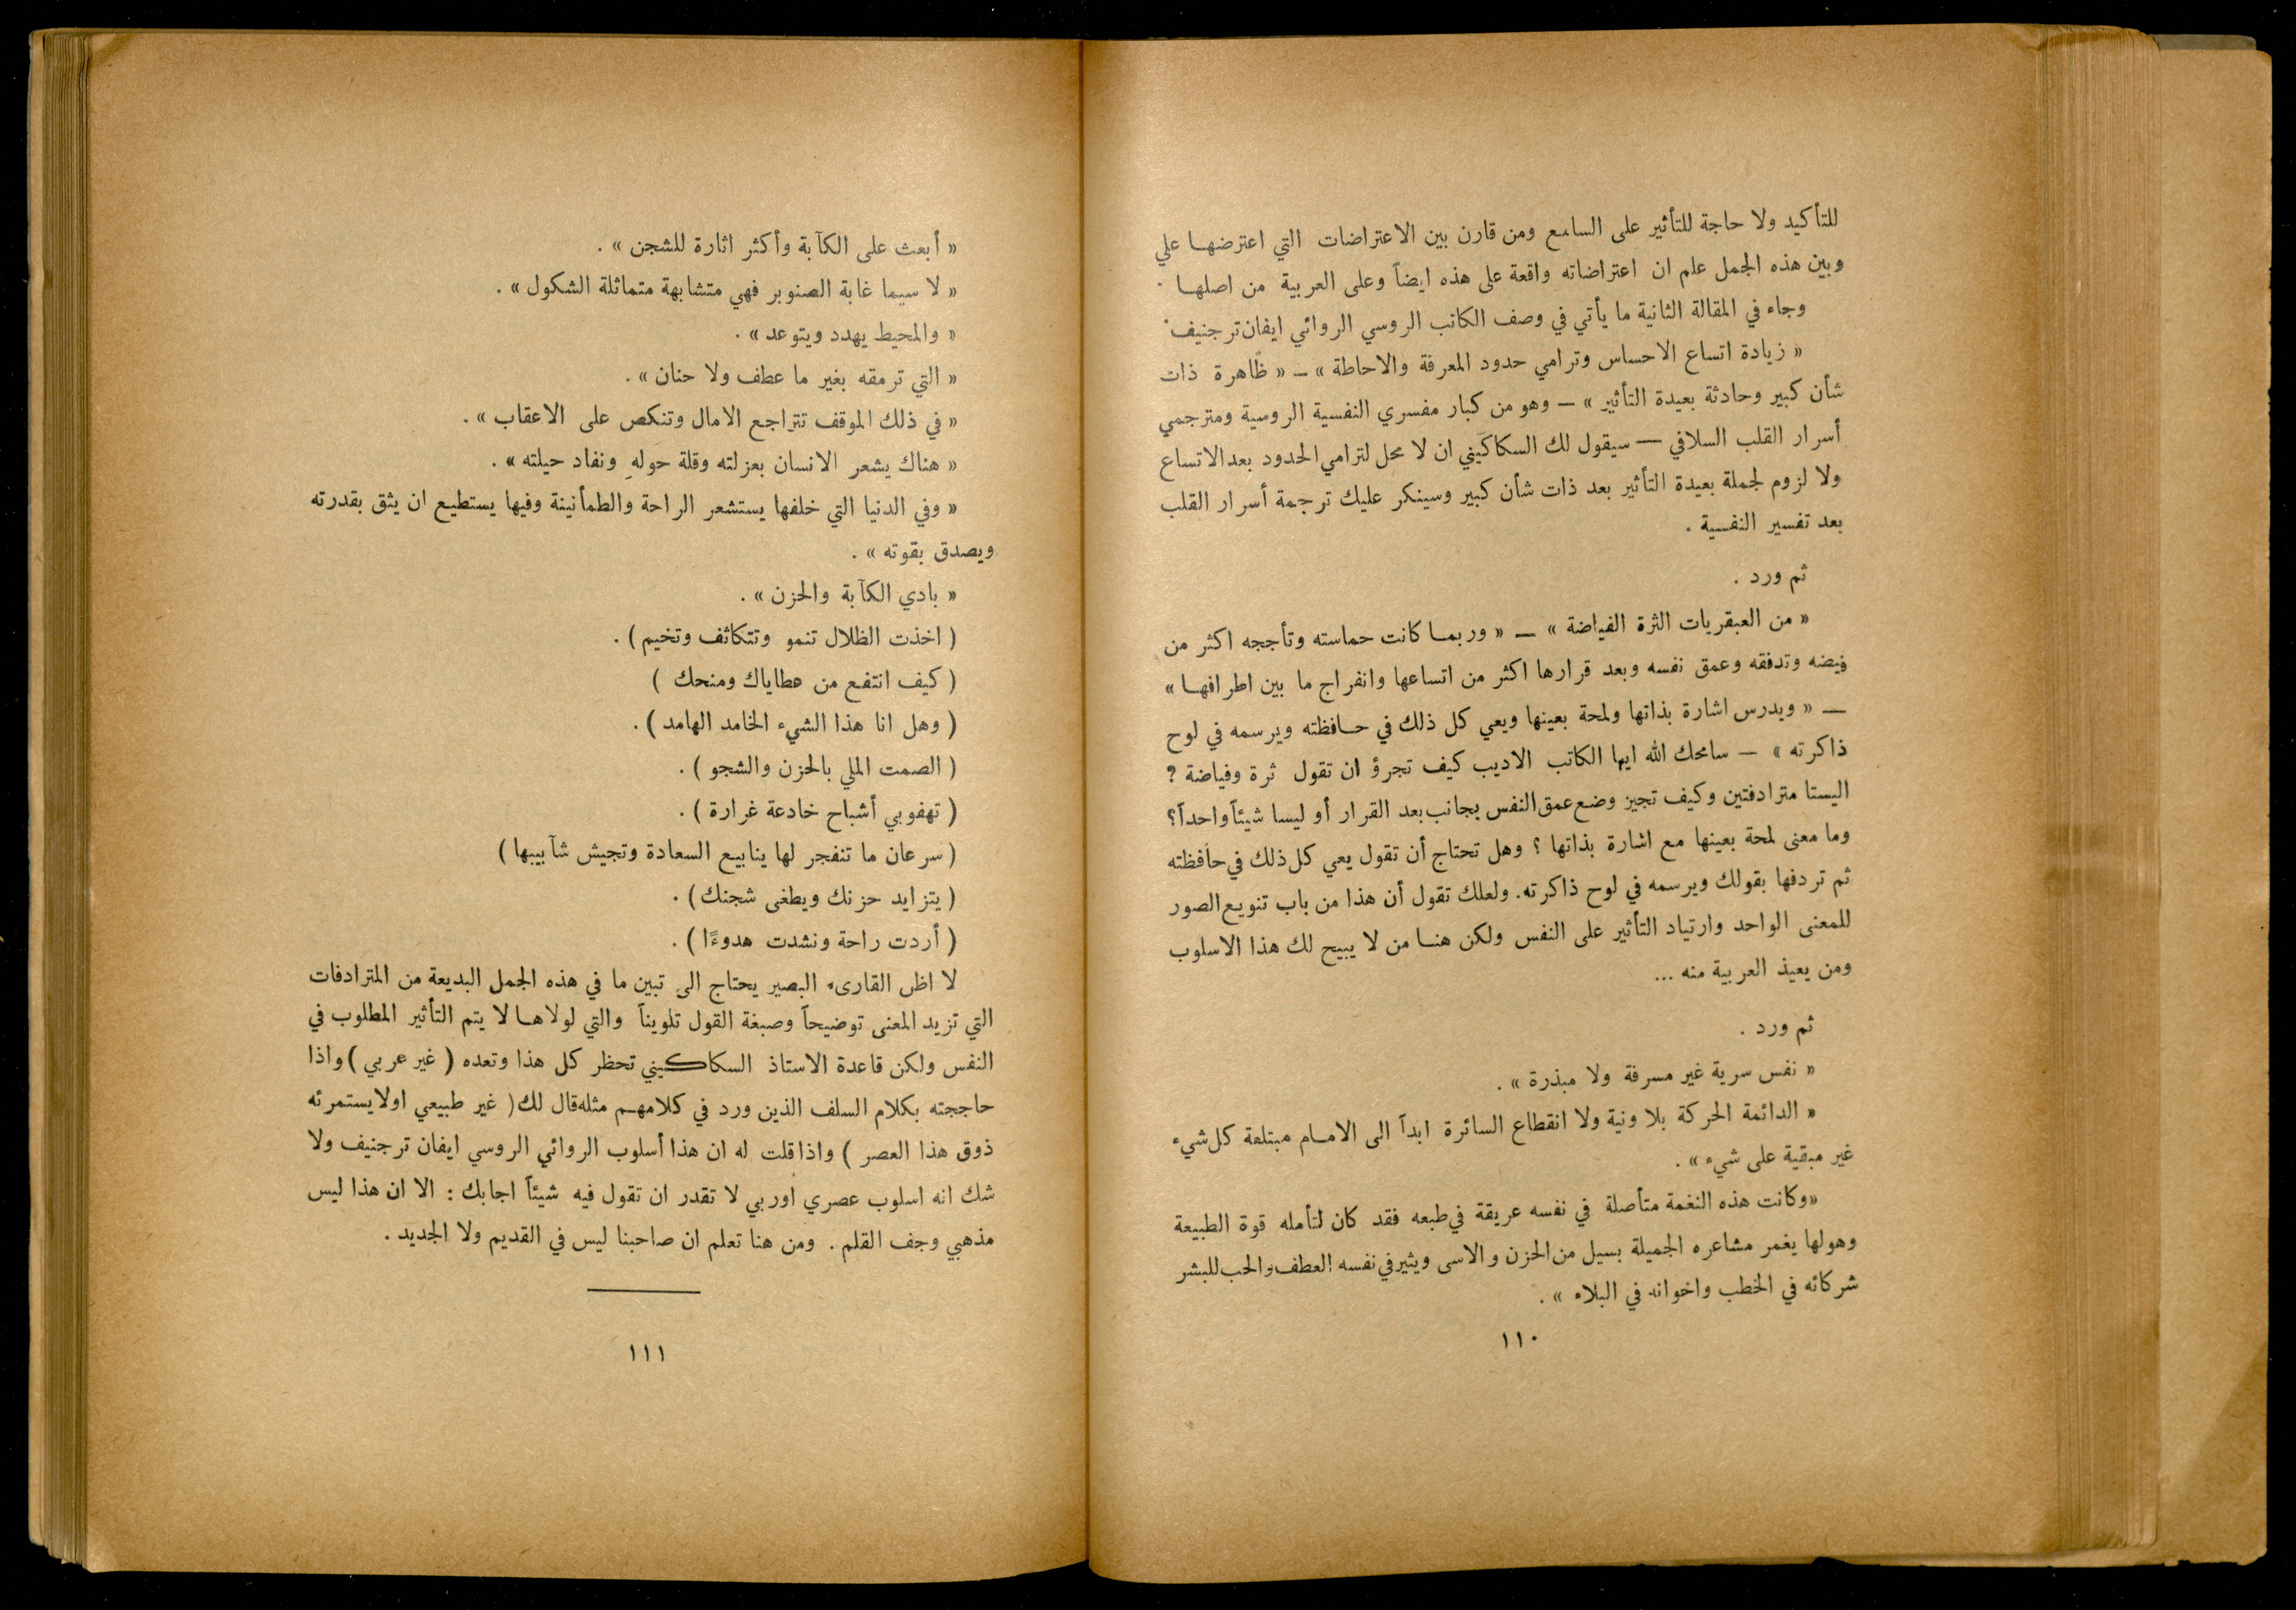 للتأكيد ولا حاجة للتأثير على السامع ومن قارن بين الاعتراضات التي اعترضها علي
وبين هذه الجمل علم ان اعتراضاته واقعة على هذه ايضاً وعلى العربية من اصلها .
وجاء في المقالة الثانية ما يأتي في وصف الكاتب الروسي الروائي ايفان ترجنيف .
« زيادة اتساع الاحساس وترامي حدود المعرفة والاحاطة » — « ظاهرة ذات
شأن كبير وحادثة بعيدة التأثير » — وهو من كبار مفسري النفسية الروسية ومترجمي
أسرار القلب السلافي — سيقول لك السكاكيني ان لا محل لترامي الحدود بعد الاتساع
ولا لزوم لجملة بعيدة التأثير بعد ذات شأن كبير وسينكر عليك ترجمة أسرار القلب
بعد تفسير النفسية .
ثم ورد .
« من العبقريات الثرة الفياضة » — « وربما كانت حماسته وتأججه اكثر من
فيضه وتدفقه وعمق نفسه وبعد قرارها اكثر من اتساعها وانفراج ما بين اطرافها »
— « ويدرس اشارة بذاتها ولمحة بعينها ويعي كل ذلك في حافظته ويرسمه في لوح
ذاكرته » — سامحك الله ايها الكاتب الاديب كيف تجرؤ ان تقول ثرة وفياضة ؟
اليستا مترادفتين وكيف تجيز وضع عمق النفس بجانب بعد القرار أو ليسا شيئاً واحداً؟
وما معنى لمحة بعينها مع اشارة بذاتها ؟ وهل تحتاج أن تقول يعي كل ذلك في حافظته
ثم تردفها بقولك ويرسمه في لوح ذاكرته. ولعلك تقول أن هذا من باب تنويع الصور
للمعنى الواحد وارتياد التأثير على النفس ولكن هنا من لا يبيح لك هذا الاسلوب
ومن يعيذ العربية منه ...
ثم ورد .
« نفس سرية غير مسرفة ولا مبذرة » .
« الدائمة الحركة بلا ونية ولا انقطاع السائرة ابداً الى الامام مبتلعة كل شيء
غير مبقية على شيء » .
«وكانت هذه النغمة متأصلة في نفسه عريقة في طبعه فقد كان لتأمله قوة الطبيعة
وهولها يغمر مشاعره الجميلة بسيل من الحزن والاسى ويثير في نفسه العطف والحب للبشر
شركائه في الخطب واخوانه في البلاء » .
١١٠
« أبعث على الكآبة وأكثر اثارة للشجن » .
« لا سيما غابة الصنوبر فهي متشابهة متماثلة الشكول » .
« والمحيط يهدد ويتوعد » .
« التي ترمقه بغير ما عطف ولا حنان » .
« في ذلك الموقف تتراجع الامال وتنكص على الاعقاب » .
« هناك يشعر الانسان بعزلته وقلة حولهِ ونفاد حيلته » .
« وفي الدنيا التي خلفها يستشعر الراحة والطمأنينة وفيها يستطيع ان يثق بقدرته
ويصدق بقوته » .
« بادي الكآبة والحزن » .
( اخذت الظلال تنمو وتتكاثف وتخيم ) .
( كيف انتفع من عطاياك ومنحك )
( وهل انا هذا الشيء الخامد الهامد ) .
( الصمت الملي بالحزن والشجو ) .
( تهفو بي أشباح خادعة غرارة ) .
( سرعان ما تنفجر لها ينابيع السعادة وتجيش شآبيبها )
( يتزايد حزنك ويطغى شجنك ) .
( أردت راحة ونشدت هدوءًا ) .
لا اظن القارىء البصير يحتاج الى تبين ما في هذه الجمل البديعة من المترادفات
التي تزيد المعنى توضيحاً وصبغة القول تلويناً والتي لولاها لا يتم التأثير المطلوب في
النفس ولكن قاعدة الاستاذ السكاكيني تحظر كل هذا وتعده ( غير عربي ) واذا
حاججته بكلام السلف الذين ورد في كلامهم مثله قال لك ( غير طبيعي اولا يستمرئه
ذوق هذا العصر ) واذا قلت له ان هذا أسلوب الروائي الروسي ايفان ترجنيف ولا
شك انه اسلوب عصري اوربي لا تقدر ان تقول فيه شيئاً اجابك : الا ان هذا ليس
مذهبي وجف القلم . ومن هنا تعلم ان صاحبنا ليس في القديم ولا الجديد .
١١١